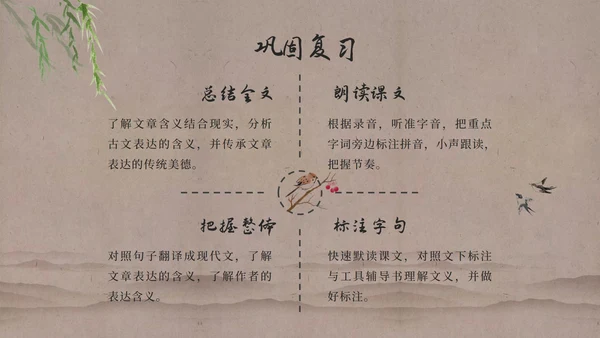 巩固复习
总结全文
了解文章含义结合现实，分析
古文表达的含义，并传承文章
表达的传统美德。
朗读课文
根据录音，听准字音，把重点
字词旁边标注拼音，小声跟读，
把握节奏。
把握整体
对照句子翻译成现代文，了解
文章表达的含义，了解作者的
表达含义。
标注字句
快速默读课文，对照文下标注
与工具辅导书理解文义，并做
好标注。